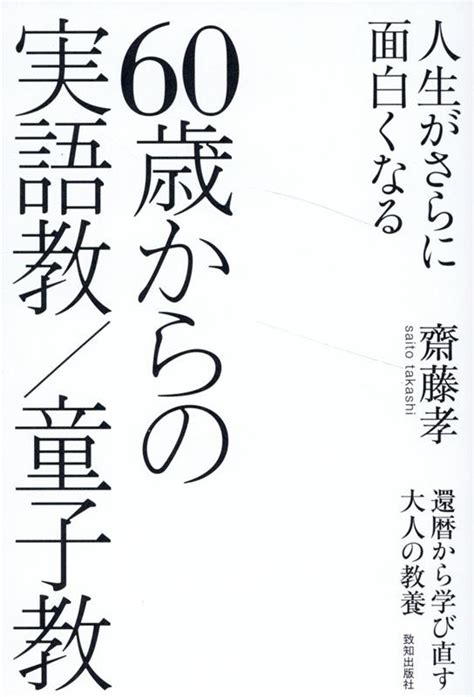 人生がさらに
面白くなる
60歳からの
実語教／童子教
齋藤孝
saito takashi
還暦から学び直す
大人の教養
致知出版社